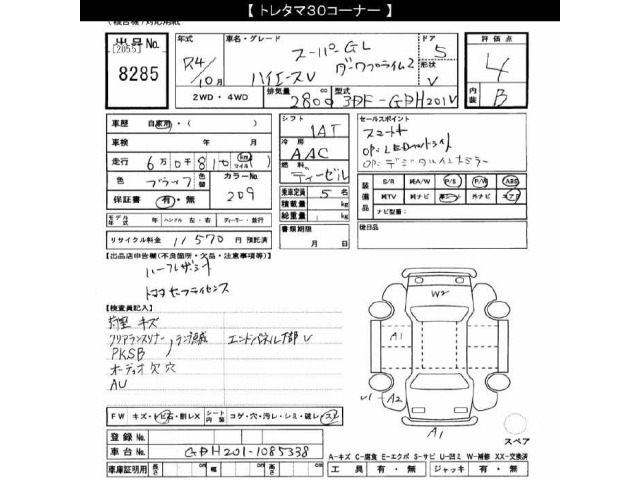 【 トレタマ30コーナー 】
（複合機）対応用紙
出品No.
[2055]
8285
年式
R4/10月
車名・グレード
スーパーGL
ハイエースV ダークプライム2
ドア 5
形状 V
2WD・4WD
排気量 2800 cc
型式 3DF-GDH201V
評価点 4
内装 B
車歴 自家用・( )
車検 年 月
走行 6万0千810 (km マイル)
色 ブラック 色替
カラーNo. 209
保証書 有・無
モデル年式 年 ハンドル 左・右 ディーラー・並行
リサイクル料金 11570 円 預託済
シフト IAT
冷房 AAC
燃料 ディーゼル
乗車定員 5 名
積載量 kg
総重量 kg
書類期限 月 日
セールスポイント
スマートキー
OP:LEDヘッドライト
OP:デジタルインナーミラー
装備品
S/R 純A/W P/S P/W ABS
純TV 純ナビ 革シート 外ナビ エアB
ナビ型番:
後日品
【出品店申告欄(不良箇所・欠品・注意事項等)】
ハーフレザーシート
トヨタセーフティセンス
【検査員記入】
荷室 キズ
クリアランスソナー
PKSB
エンドパネル下部 U
オーディオ欠 穴
AU
A1
W2
U1
A2
A1
スペア
FW キズ・トビ石・割レX
シート内装 コゲ・穴・汚レ・シミ・破レ・スレ
登録No.
車台No. GDH201-1085338
車庫証明用 長さ cm 幅 cm 高さ cm
A-キズ C-腐食 E-エクボ S-サビ U-凹ミ W-補修 XX-交換済
工具 有・無 ジャッキ 有・無